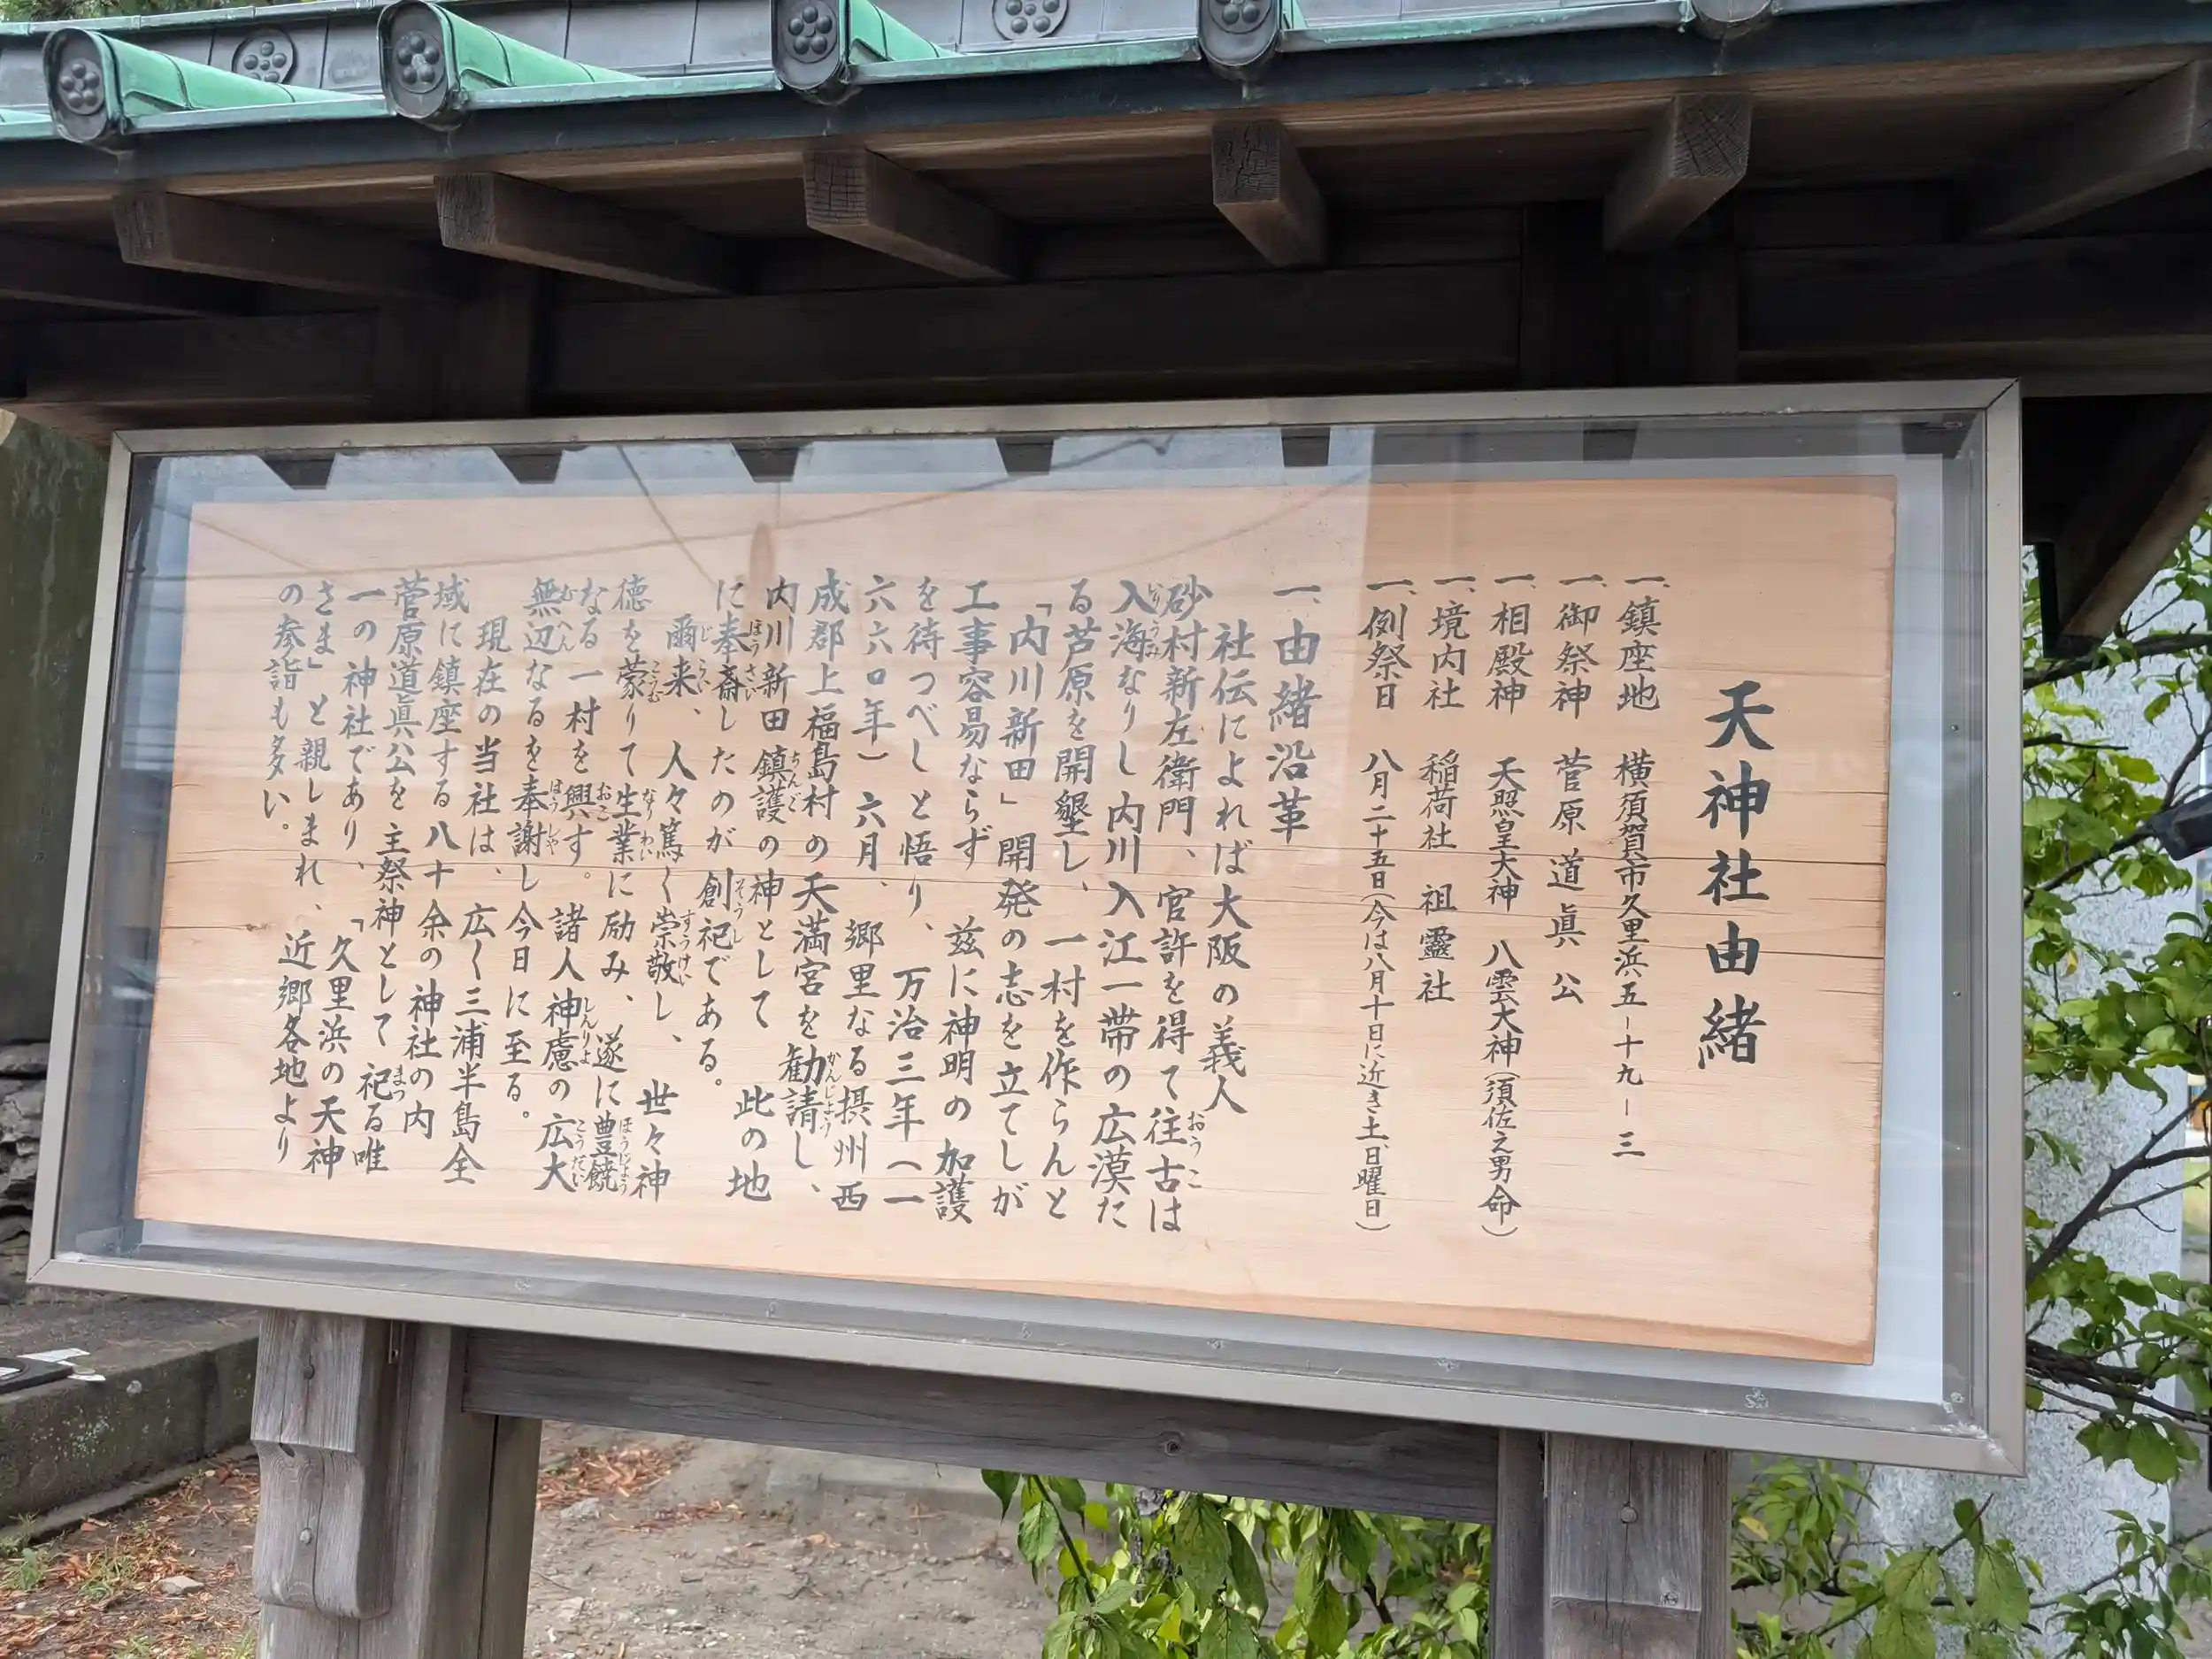 天神社由緒
一、鎮座地 横須賀市久里浜五ー十九ー三
一、御祭神 菅原道眞公
一、相殿神 天照皇大神 八雲大神(須佐之男命)
一、境内社 稲荷社 祖靈社
一、例祭日 八月二十五日(今は八月十日に近き土、日曜日)
一、由緒沿革
社伝によれば大阪の義人
砂村新左衛門、官許を得て往古は
入海なりし内川入江一帯の広漠た
る芦原を開墾し、一村を作らんと
「内川新田」開発の志を立てしが
工事容易ならず 茲に神明の加護
を待つべしと悟り、万治三年(一
六六〇年)六月、郷里なる摂州西
成郡上福島村の天満宮を勧請し、
内川新田鎮護の神として 此の地
に奉斎したのが創祀である。
爾来、人々篤く崇敬し、世々神
徳を蒙りて生業に励み、遂に豊饒
なる一村を興す。諸人神慮の広大
無辺なるを奉謝し今日に至る。
現在の当社は、広く三浦半島全
域に鎮座する八十余の神社の内
菅原道眞公を主祭神として祀る唯
一の神社であり、「久里浜の天神
さま」と親しまれ、近郷各地より
の参詣も多い。